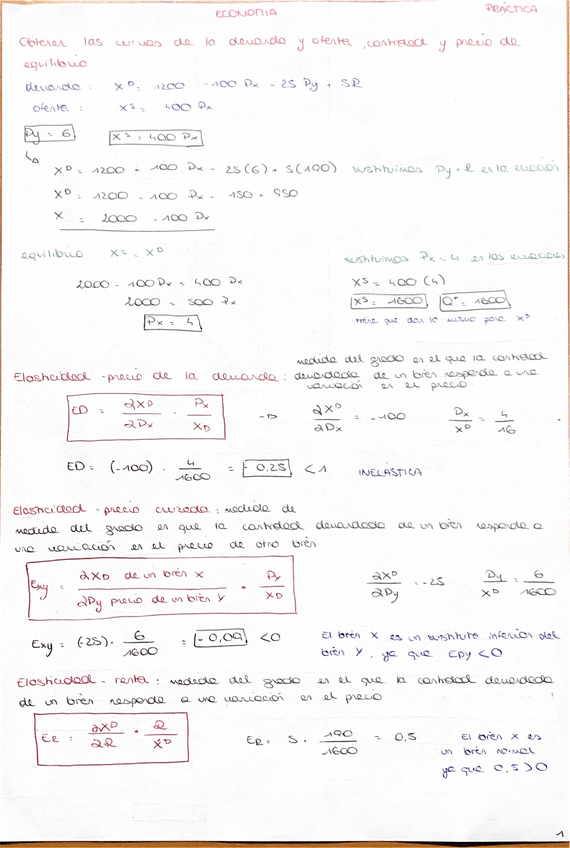 ECONOMIA PRÁCTICA
Obtener las curvas de la demanda y oferta, cantidad y precio de
equilibrio
demanda: X^D = 1200 - 100 Px - 25 Py + 5R
oferta: X^S = 400 Px
Py = 6 X^S = 400 Px
X^D = 1200 - 100 Px - 25(6) + 5(190) sustituimos Py + R en la ecuación
X^D = 1200 - 100 Px - 150 + 950
X = 2000 - 100 Px
equilibrio X^S = X^D
sustituimos Px = 4 en las ecuaciones
2000 - 100 Px = 400 Px X^S = 400 (4)
2000 = 500 Px X^S = 1600 Q* = 1600
Px = 4 tiene que dar lo mismo para X^D
Elasticidad - precio de la demanda: medida del grado en el que la cantidad
demandada de un bien responde a una
variación en el precio.
ED = 2X^D / 2Px · Px / XD → 2X^D / 2Px = -100 Px / X^D = 4 / 16
ED = (-100) · 4 / 1600 = -0.25 < 1 INELÁSTICA
Elasticidad - precio cruzada: medida de
medida del grado en que la cantidad demandada de un bien responde a
una variación en el precio de otro bien
Exy = 2XD de un bien X / 2Py precio de un bien Y · Py / XD 2X^D / 2Py = -25 Py / X^D = 6 / 1600
Exy = (-25) · 6 / 1600 = -0,09 < 0 El bien X es un sustituto inferior del
bien Y, ya que Epy < 0
Elasticidad - renta: medida del grado en el que la cantidad demandada
de un bien responde a una variación en el precio
ER = 2X^D / 2R · R / X^D ER = 5 · 190 / 1600 = 0,5 El bien X es
un bien normal
ya que 0,5 > 0
1